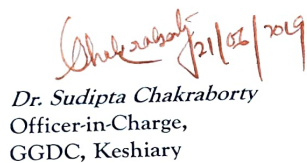 Chakraborty 21/06/2019
Dr. Sudipta Chakraborty
Officer-in-Charge,
GGDC, Keshiary